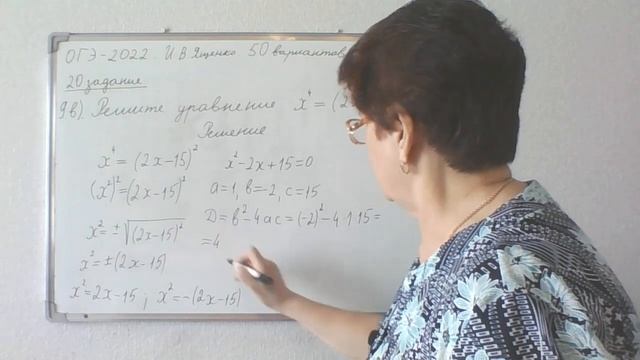 ОГЭ-2022. И.В. Ященко 50 вариантов
20 задание
9в) Решите уравнение x⁴ = (2
Решение
x⁴ = (2x-15)²
(x²)² = (2x-15)²
x² = ±√(2x-15)²
x² = ±(2x-15)
x² = 2x-15 ; x² = -(2x-15)
x² - 2x + 15 = 0
a = 1, b = -2, c = 15
D = b² - 4ac = (-2)² - 4·1·15 =
= 4